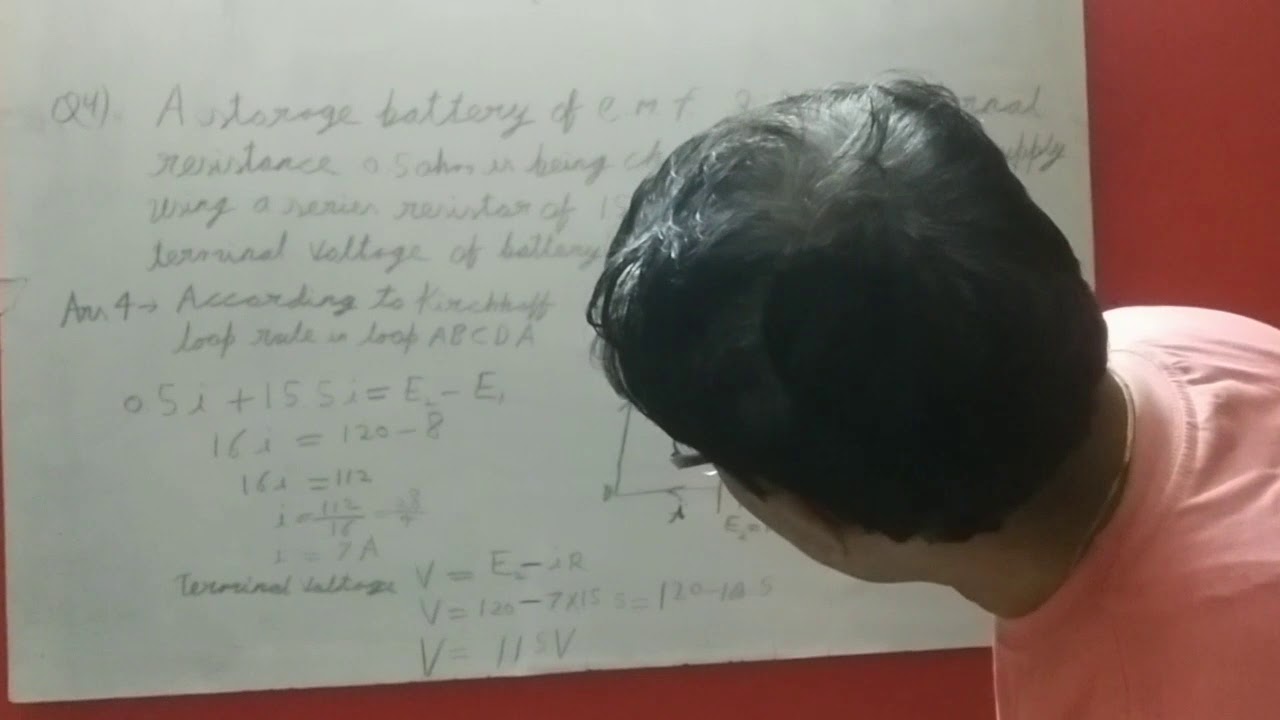 Q4). A storage battery of e.m.f. 8
resistance 0.5 ohm is being ch pply
using a series resistor of 15
terminal voltage of battery
Ans.4→ According to Kirchhoff
loop rule in loop ABCDA
0.5i + 15 5i = E₂ - E₁
16i = 120 - 8
16i = 112
i = 112/16
i = 7A
i
E₂ =
Terminal Voltage V = E₂ - iR
V = 120 - 7×15 5 = 120-108 5
V = 11 5V